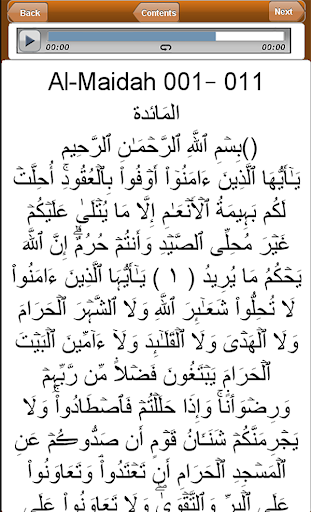 Back Contents Next
00:00 00:00
Al-Maidah 001- 011
المَائدة
()بِسْمِ ٱللَّهِ ٱلرَّحْمَـٰنِ ٱلرَّحِيمِ
يَـٰٓأَيُّهَا ٱلَّذِينَ ءَامَنُوٓا۟ أَوْفُوا۟ بِٱلْعُقُودِ ۚ أُحِلَّتْ
لَكُم بَهِيمَةُ ٱلْأَنْعَـٰمِ إِلَّا مَا يُتْلَىٰ عَلَيْكُمْ
غَيْرَ مُحِلِّى ٱلصَّيْدِ وَأَنتُمْ حُرُمٌ ۗ إِنَّ ٱللَّهَ
يَحْكُمُ مَا يُرِيدُ ( ١ ) يَـٰٓأَيُّهَا ٱلَّذِينَ ءَامَنُوا۟
لَا تُحِلُّوا۟ شَعَـٰٓئِرَ ٱللَّهِ وَلَا ٱلشَّهْرَ ٱلْحَرَامَ
وَلَا ٱلْهَدْىَ وَلَا ٱلْقَلَـٰٓئِدَ وَلَآ ءَآمِّينَ ٱلْبَيْتَ
ٱلْحَرَامَ يَبْتَغُونَ فَضْلًا مِّن رَّبِّهِمْ
وَرِضْوَٰنًا ۚ وَإِذَا حَلَلْتُمْ فَٱصْطَادُوا۟ ۚ وَلَا
يَجْرِمَنَّكُمْ شَنَـَٔانُ قَوْمٍ أَن صَدُّوكُمْ عَنِ
ٱلْمَسْجِدِ ٱلْحَرَامِ أَن تَعْتَدُوا۟ ۘ وَتَعَاوَنُوا۟
عَلَى ٱلْبِرِّ وَٱلتَّقْوَىٰ ۖ وَلَا تَعَاوَنُوا۟ عَلَى